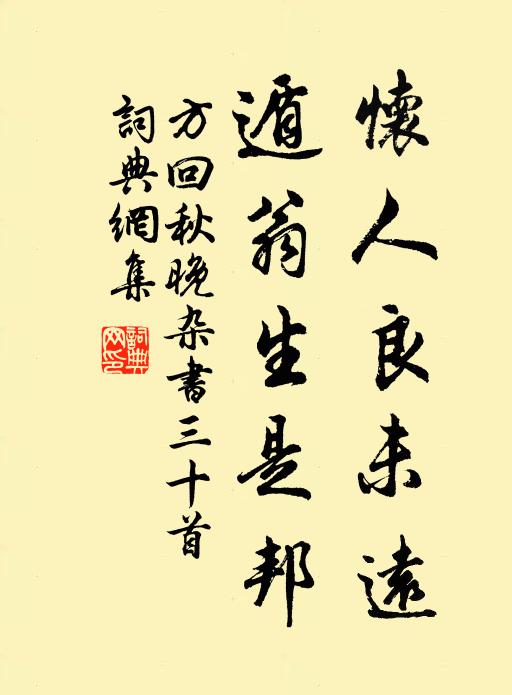 懷人良未遠
遁翁生是邦
方回秋晚杂書三十首
詞典網集
詞典網印